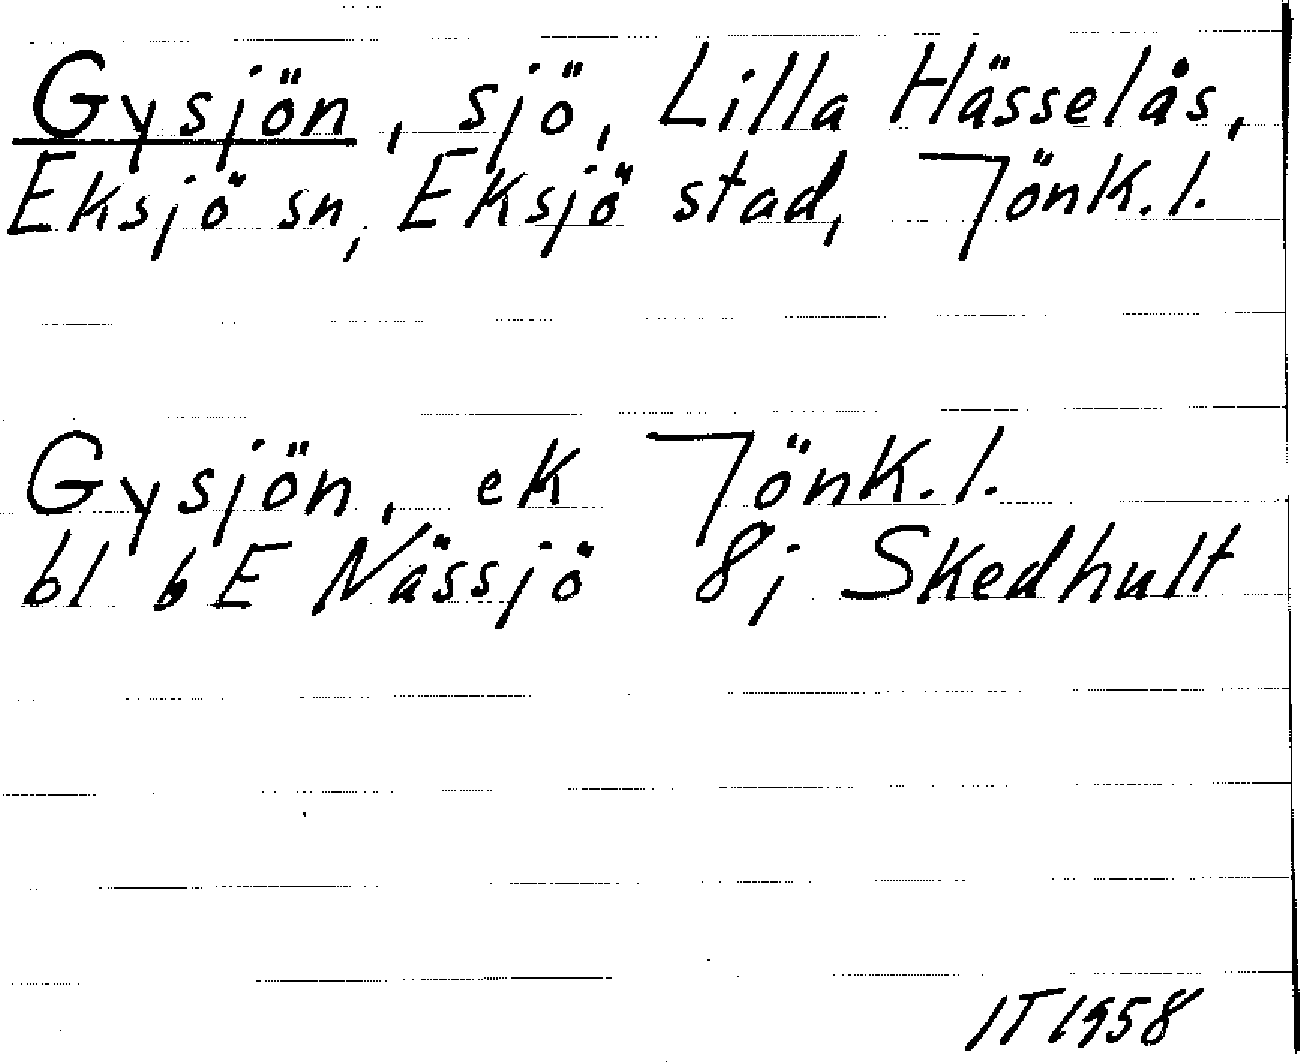 Gysjön, sjö, Lilla Hässelås,
Eksjö sn, Eksjö stad, Jönk.l.
Gysjön, ek Jönk.l.
bl 6E Nässjö 8j Skedhult
IT 1958